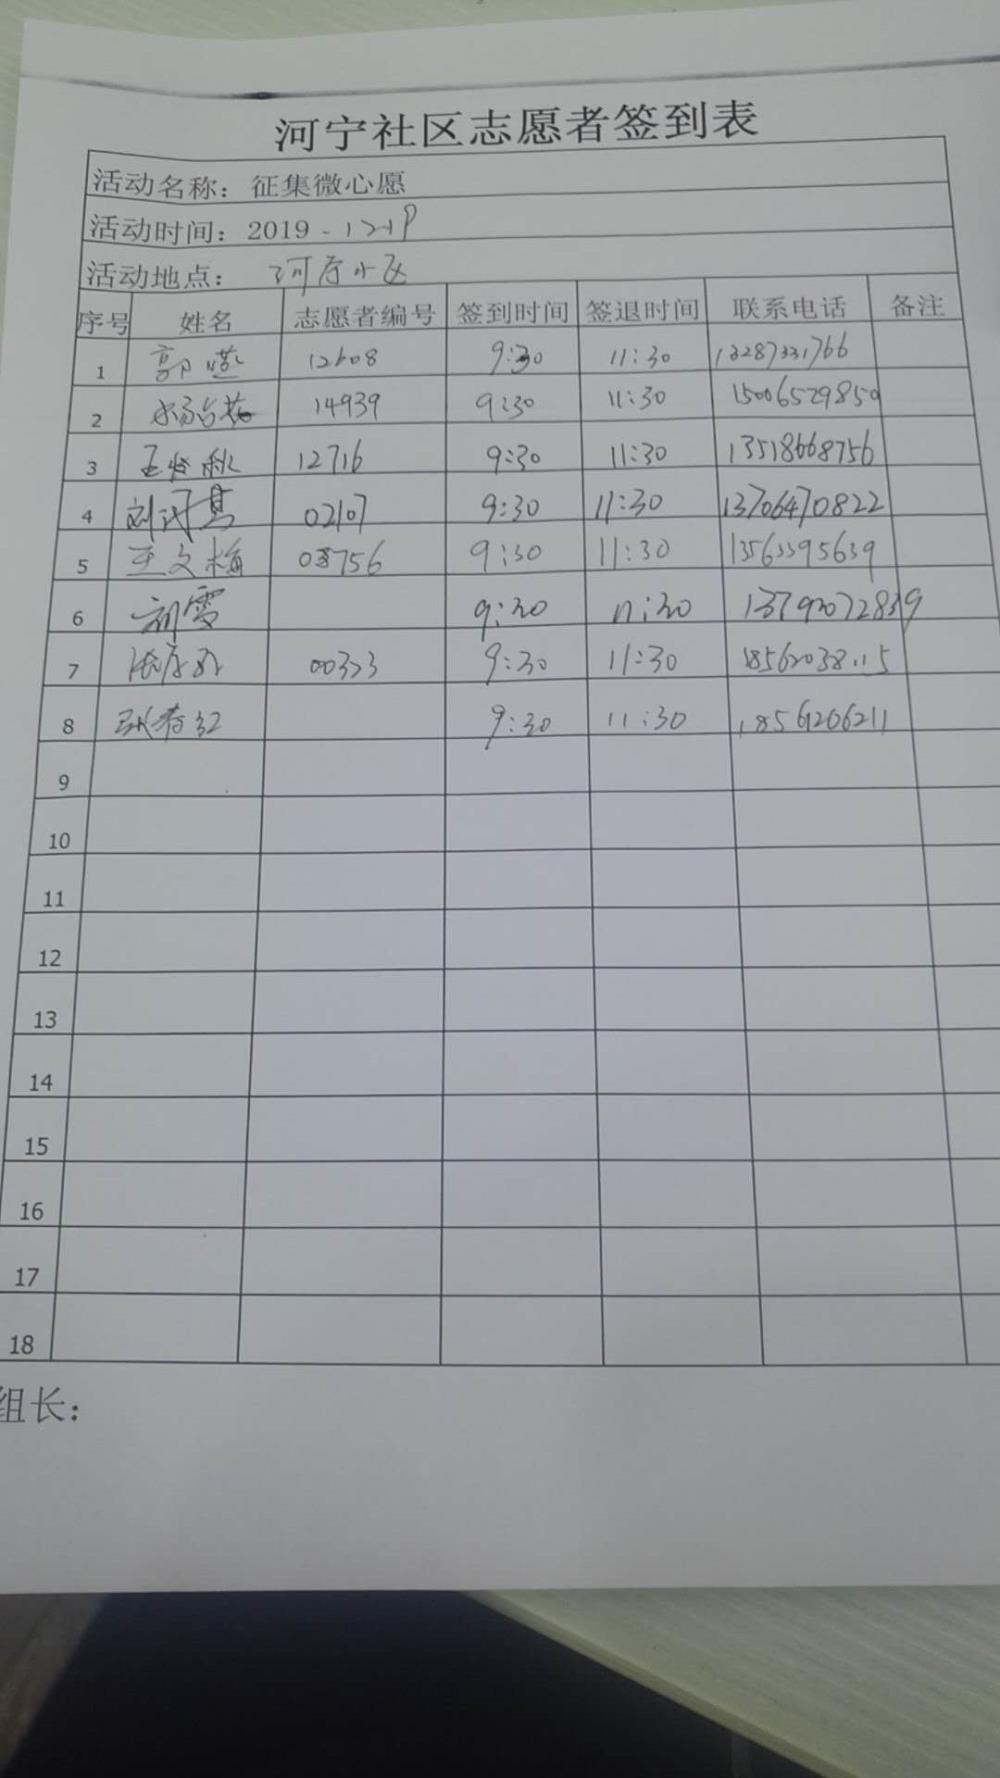 河宁社区志愿者签到表
活动名称：征集微心愿
活动时间：2019 - 12-19
活动地点： 河宁小区
序号 姓名 志愿者编号 签到时间 签退时间 联系电话 备注
1 郭 12608 9:30 11:30 13287331766
2 杨 14939 9:30 11:30 15006529850
3 王 秋 12716 9:30 11:30 13518668756
4 刘 02107 9:30 11:30 13706470822
5 王文梅 08756 9:30 11:30 13563395639
6 刘雯 9:30 11:30
7 00323 9:30 11:30
8 耿春红 9:30 11:30 18561206211
9
10
11
12
13
14
15
16
17
18
组长：